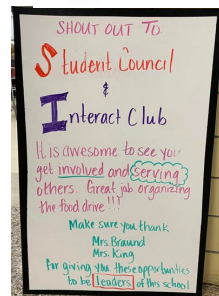 SHOUT OUT TO
Student Council
&
Interact Club
It is awesome to see you
get involved and serving
others. Great job organizing
the food drive!!!
Make sure you thank
Mrs Braund
Mrs. King
For giving you these opportunities
to be leaders of this school